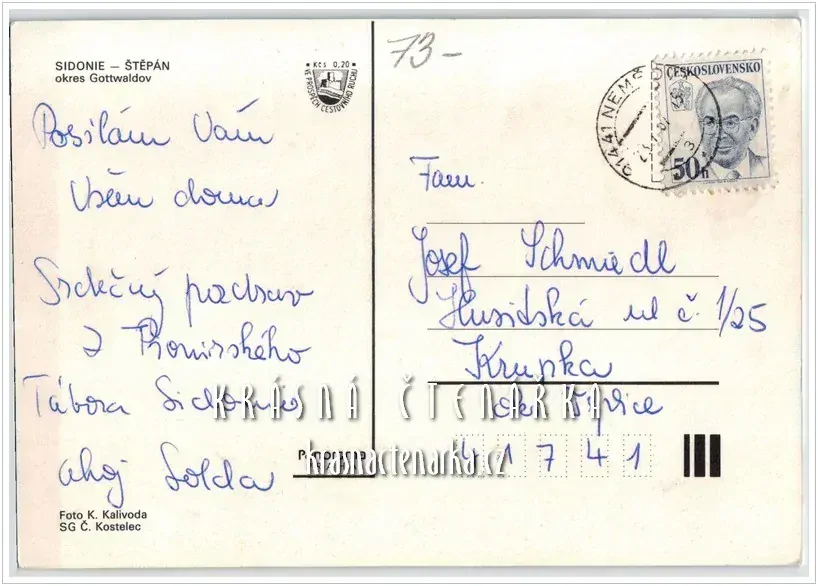 SIDONIE – ŠTĚPÁN
okres Gottwaldov
Kčs 0,20
VE PROSPĚCH CESTOVNÍHO RUCHU
73-
ČESKOSLOVENSKO
50h
914 41 NEMŠ
Posílám Vám
Všem doma
Srdečný pozdrav
z Pionýrského
Tábora Sidonie
ahoj Solda
Fam.
Josef Schmiedl
Husitská ul č. 1/25
Krupka
ok. Teplice
41741
Foto K. Kalivoda
SG Č. Kostelec
KRÁSNÁ ČTENÁŘKA
krasnactenarka.cz